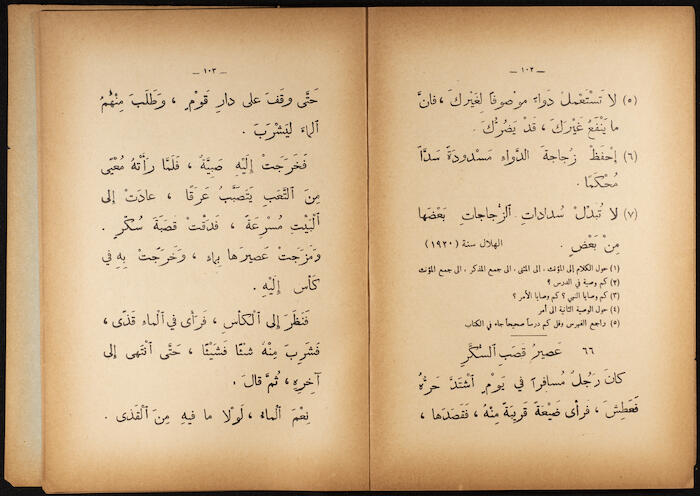 — ١٠٢ —
(٥) لا تَسْتَعْمِلْ دَواءً مَوْصُوفًا لِغَيْرِكَ ، فَإِنَّ
ما يَنْفَعُ غَيْرَكَ ، قَدْ يَضُرُّكَ .
(٦) إِحْفَظْ زُجاجَةَ الدَّواءِ مَسْدُودَةً سَدًّا
مُحْكَمًا .
(٧) لا تُبَدِّلْ سُداداتِ ٱلزُّجاجاتِ بَعْضَها
مِنْ بَعْضٍ . الهلال سنة (١٩٢٠)
(١) حول الكلام إلى المؤنث . الى المثنى . الى جمع المذكر . الى جمع المؤنث
(٢) كم وصية في الدرس ؟
(٣) كم وصايا النهي ؟ كم وصايا الأمر ؟
(٤) حول الوصية الثانية الى أمر
(٥) راجع الفهرس وقل كم درساً صحيحاً جاء في الكتاب
٦٦ عَصِيرُ قَصَبِ ٱلسُّكَّرِ
كانَ رَجُلٌ مُسافِرًا في يَوْمٍ ٱشْتَدَّ حَرُّهُ
فَعَطِشَ ، فَرأى ضَيْعَةً قَرِيبَةً مِنْهُ ، فَقَصَدَها ،
— ١٠٣ —
حَتَّى وقَفَ على دارِ قَوْمٍ ، وَطَلَبَ مِنْهُمُ
ٱلْماءَ لِيَشْرَبَ .
فَخَرَجَتْ إِلَيْهِ صَبِيَّةٌ ، فَلَمَّا رَأَتْهُ مُعْيًى
مِنَ ٱلتَّعَبِ يَتَصَبَّبُ عَرَقًا ، عادَتْ إلى
ٱلْبَيْتِ مُسْرِعَةً ، فَدَقَّتْ قَصَبَةَ سُكَّرٍ .
وَمَزَجَتْ عَصِيرَها بِماءٍ ، وَخَرَجَتْ بِهِ في
كَأْسٍ إِلَيْهِ .
فَنَظَرَ إلى ٱلْكَأْسِ ، فَرأى في ٱلْماءِ قَذًى ،
فَشَرِبَ مِنْهُ شَيْئًا فَشَيْئًا ، حَتَّى ٱنْتَهى إلى
آخِرِهِ ، ثُمَّ قالَ .
نِعْمَ ٱلْماءُ ، لَوْلا ما فِيهِ مِنَ ٱلْقَذى .